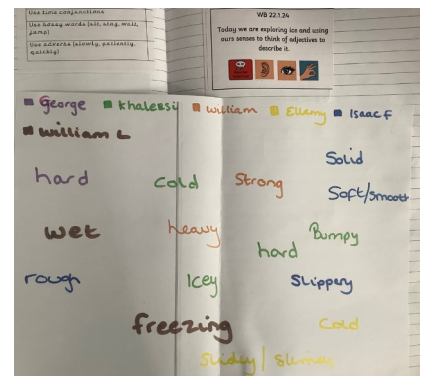 Use time conjunctions
Use bossy words (sit, stay, wait, jump)
Use adverbs (slowly, patiently, quickly)
WB 22.1.24
Today we are exploring ice and using
ours senses to think of adjectives to
describe it.
George khaleesi william Ellamy Isaac F
william L
Solid
hard cold Strong Soft/smooth
wet heavy Bumpy
hard
rough Icey Slippery
freezing cold
Slidey / Slimey